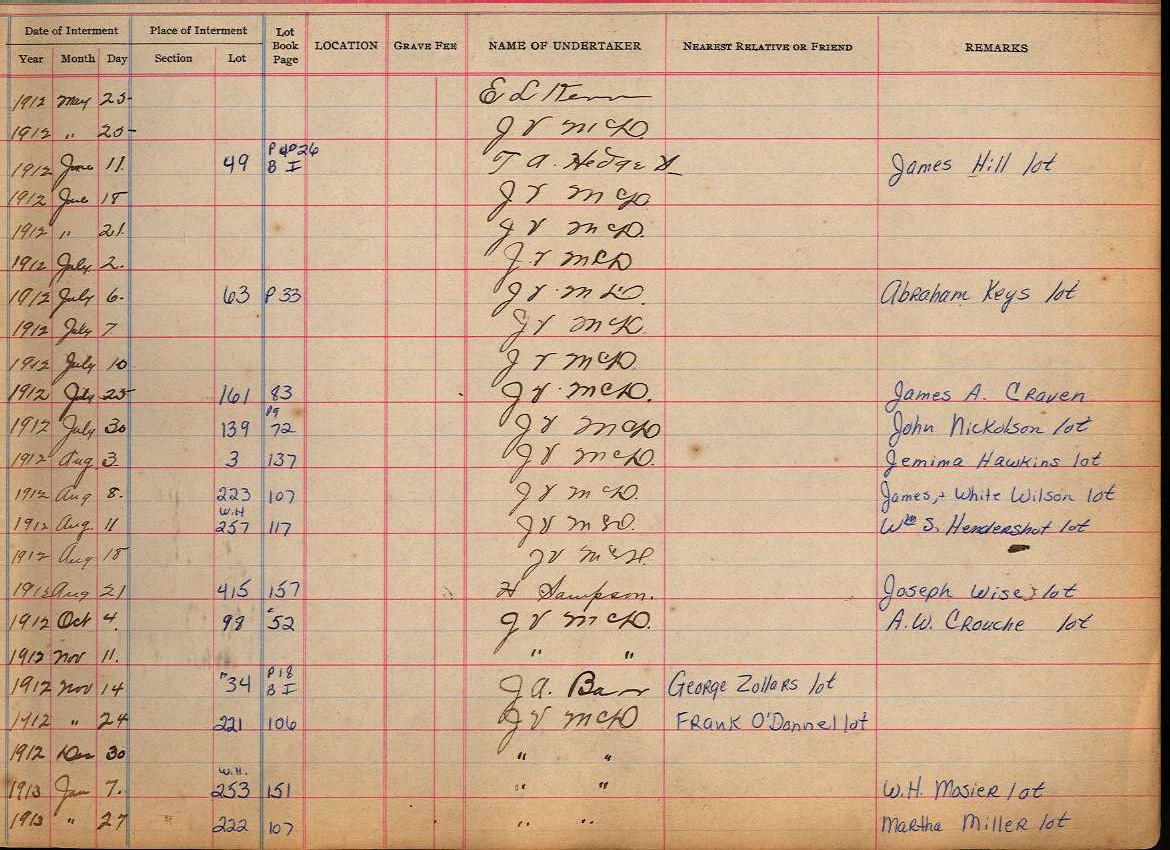 Date of Interment Place of Interment Lot Book Page LOCATION GRAVE FEE NAME OF UNDERTAKER NEAREST RELATIVE OR FRIEND REMARKS
Year Month Day Section Lot
1912 May 25 E L Kerr
1912 " 25 J V McD
1912 June 11. 49 P 26 B I T. A. Hedge James Hill lot
1912 June 18 J V McD.
1912 " 21. J V McD.
1912 July 2. J. V McD
1912 July 6. 63 P 33 J V. McD. Abraham Keys lot
1912 July 7 J V McD.
1912 July 10 J V McD.
1912 July 25 161 83 J V. McD. James A. Craven
1912 July 30 139 Pg 72 J V McD John Nickolson lot
1912 Aug 3. 3 137 J V McD. Jemima Hawkins lot
1912 Aug 8. 223 107 J V McD. James, + White Wilson lot
1912 Aug. 11 W.H 257 117 J V McD. Wm S. Hendershot lot
1912 Aug 18 J V
1912 Aug 21 415 157 H Sampson. Joseph Wise lot
1912 Oct 4. 98 "52 J V McD. A.W. Crouche lot
1912 Nov 11. " "
1912 Nov 14 "34 P 18 B I J A. Barr George Zollars lot
1912 " 24 221 106 J V McD Frank O'Donnel lot
1912 Dec 30 " "
1913 Jan 7. W.H. 253 151 " " W.H. Mosier lot
1913 " 27 222 107 " " Martha Miller lot